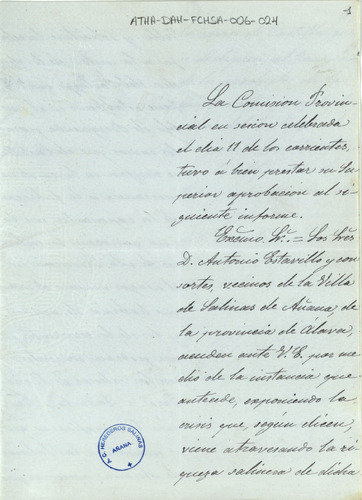 ATHA-DAH-FCHSA-006-024
1
La Comision Provin-
cial en sesion celebrada
el dia 11 de los corrientes,
tuvo á bien prestar su Su-
perior aprobacion al si-
guiente informe.
Excmo. Sr. = Los Sres
D. Antonio Estavillo y con-
sortes, vecinos de la Villa
de Salinas de Añana, de
la provincia de Álava,
acuden ante V.E. por me
dio de la instancia que
antecede, exponiendo la
crisis que, según dicen,
viene atravesando la ri
queza salinera de dicha
HEREDEROS SALINAS
AÑANA